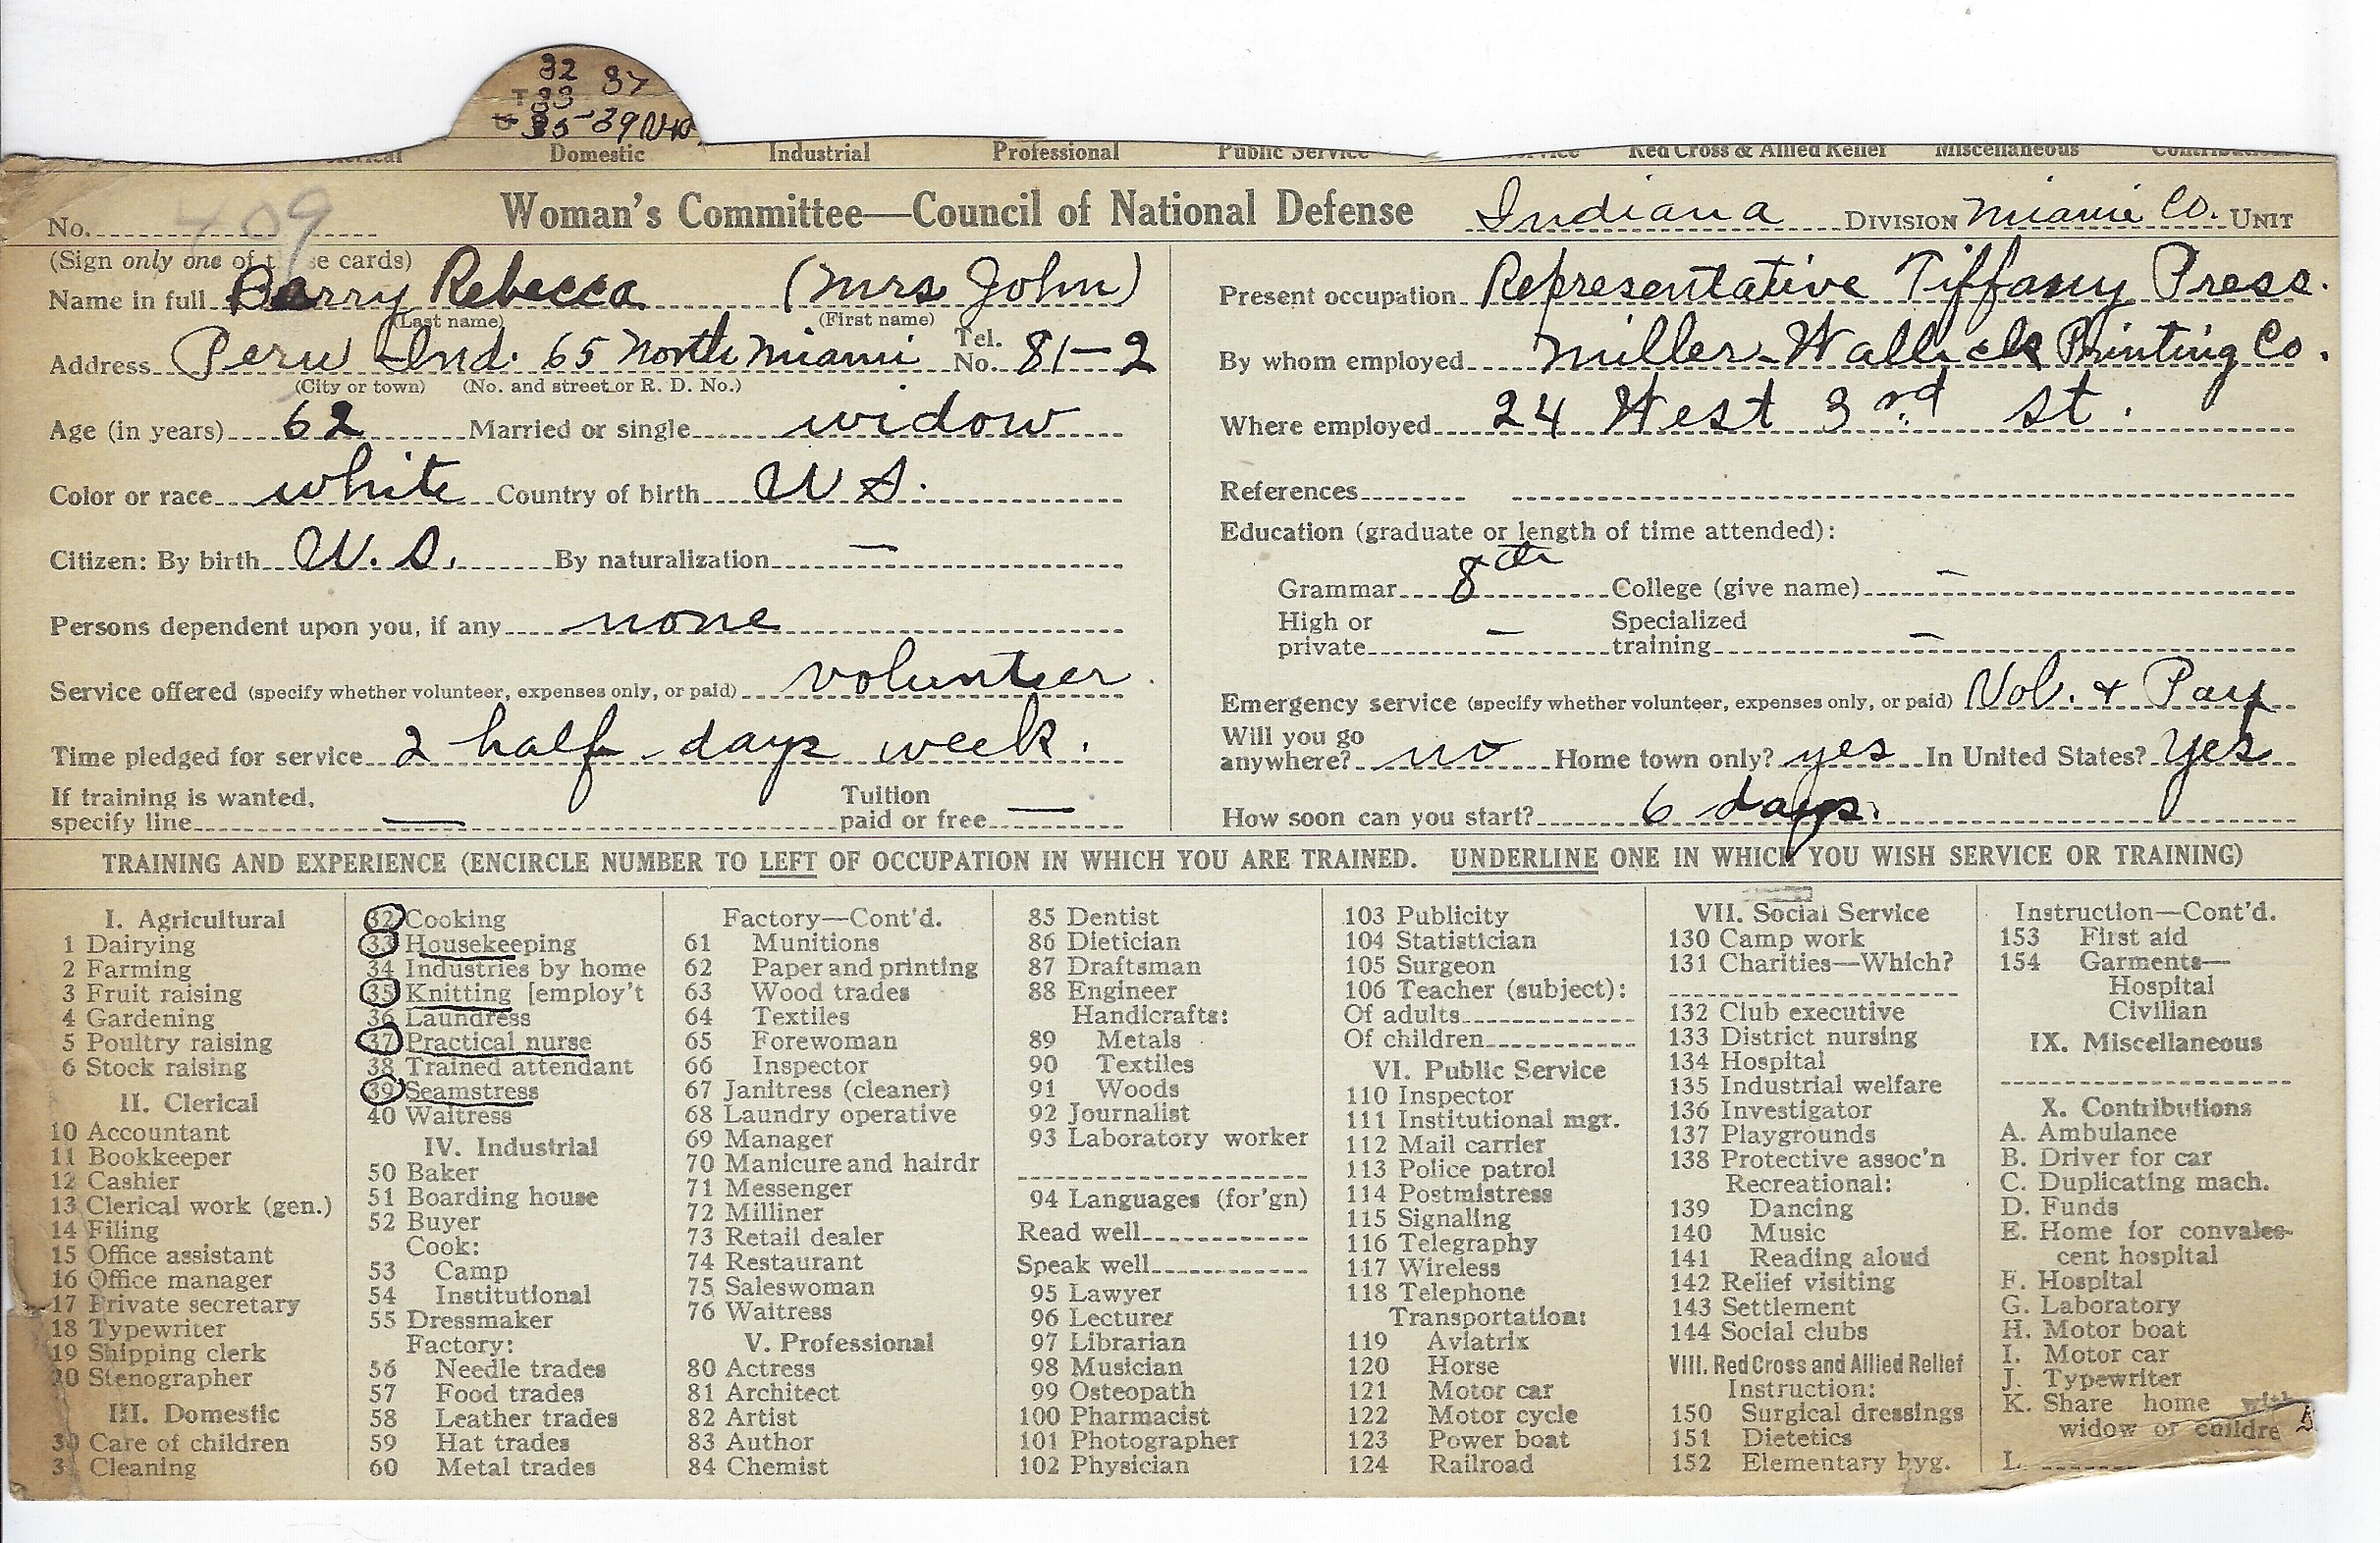 32 37
T 33
35-39
Domestic Industrial Professional Public Service Red Cross & Allied Relief Miscellaneous
No. 409
Woman's Committee—Council of National Defense
Indiana DIVISION Miami Co. UNIT
(Sign only one of these cards)
Name in full Berry Rebecca (Mrs John)
(Last name) (First name)
Address Peru Ind. 65 North Miami Tel. No. 81-2
(City or town) (No. and street or R. D. No.)
Age (in years) 62 Married or single widow
Color or race white Country of birth U S.
Citizen: By birth U. S. By naturalization —
Persons dependent upon you, if any none
Service offered (specify whether volunteer, expenses only, or paid) volunteer.
Time pledged for service 2 half days week.
If training is wanted,
specify line — Tuition paid or free —
Present occupation Representative Tiffany Press.
By whom employed Miller-Wallick Printing Co.
Where employed 24 West 3rd St.
References
Education (graduate or length of time attended):
Grammar 8th College (give name) —
High or private — Specialized training —
Emergency service (specify whether volunteer, expenses only, or paid) Vol. & Pay
Will you go anywhere? no Home town only? yes In United States? Yes
How soon can you start? 6 days.
TRAINING AND EXPERIENCE (ENCIRCLE NUMBER TO LEFT OF OCCUPATION IN WHICH YOU ARE TRAINED. UNDERLINE ONE IN WHICH YOU WISH SERVICE OR TRAINING)
I. Agricultural
1 Dairying
2 Farming
3 Fruit raising
4 Gardening
5 Poultry raising
6 Stock raising
II. Clerical
10 Accountant
11 Bookkeeper
12 Cashier
13 Clerical work (gen.)
14 Filing
15 Office assistant
16 Office manager
17 Private secretary
18 Typewriter
19 Shipping clerk
20 Stenographer
III. Domestic
30 Care of children
31 Cleaning
32 Cooking
33 Housekeeping
34 Industries by home
35 Knitting [employ't
36 Laundress
37 Practical nurse
38 Trained attendant
39 Seamstress
40 Waitress
IV. Industrial
50 Baker
51 Boarding house
52 Buyer
Cook:
53 Camp
54 Institutional
55 Dressmaker
Factory:
56 Needle trades
57 Food trades
58 Leather trades
59 Hat trades
60 Metal trades
Factory—Cont'd.
61 Munitions
62 Paper and printing
63 Wood trades
64 Textiles
65 Forewoman
66 Inspector
67 Janitress (cleaner)
68 Laundry operative
69 Manager
70 Manicure and hairdr
71 Messenger
72 Milliner
73 Retail dealer
74 Restaurant
75 Saleswoman
76 Waitress
V. Professional
80 Actress
81 Architect
82 Artist
83 Author
84 Chemist
85 Dentist
86 Dietician
87 Draftsman
88 Engineer
Handicrafts:
89 Metals
90 Textiles
91 Woods
92 Journalist
93 Laboratory worker
94 Languages (for'gn)
Read well
Speak well
95 Lawyer
96 Lecturer
97 Librarian
98 Musician
99 Osteopath
100 Pharmacist
101 Photographer
102 Physician
103 Publicity
104 Statistician
105 Surgeon
106 Teacher (subject):
Of adults
Of children
VI. Public Service
110 Inspector
111 Institutional mgr.
112 Mail carrier
113 Police patrol
114 Postmistress
115 Signaling
116 Telegraphy
117 Wireless
118 Telephone
Transportation:
119 Aviatrix
120 Horse
121 Motor car
122 Motor cycle
123 Power boat
124 Railroad
VII. Social Service
130 Camp work
131 Charities—Which?
132 Club executive
133 District nursing
134 Hospital
135 Industrial welfare
136 Investigator
137 Playgrounds
138 Protective assoc'n
Recreational:
139 Dancing
140 Music
141 Reading aloud
142 Relief visiting
143 Settlement
144 Social clubs
VIII. Red Cross and Allied Relief
Instruction:
150 Surgical dressings
151 Dietetics
152 Elementary hyg.
Instruction—Cont'd.
153 First aid
154 Garments—
Hospital
Civilian
IX. Miscellaneous
X. Contributions
A. Ambulance
B. Driver for car
C. Duplicating mach.
D. Funds
E. Home for convales-
cent hospital
F. Hospital
G. Laboratory
H. Motor boat
I. Motor car
J. Typewriter
K. Share home with
widow or childre
L.